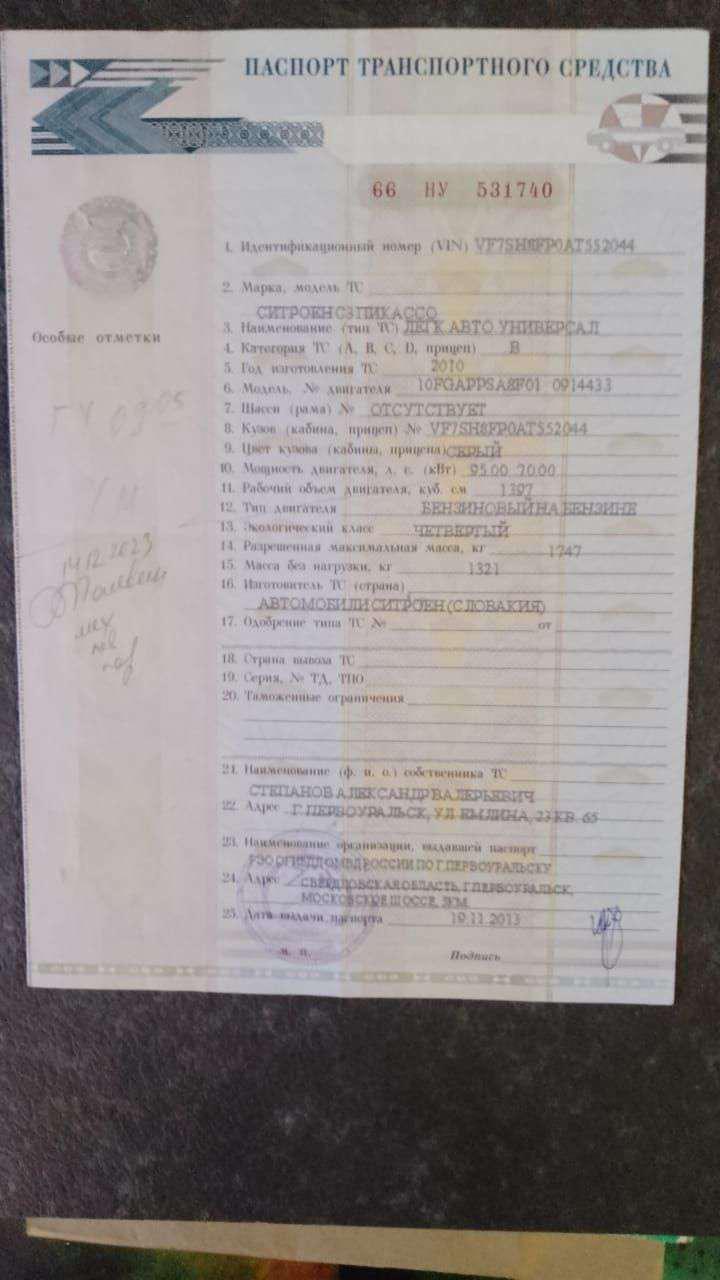 ПАСПОРТ ТРАНСПОРТНОГО СРЕДСТВА
66 НУ 531740
Особые отметки
1. Идентификационный номер (VIN) VF7SH8FP0AT552044
2. Марка, модель ТС
СИТРОЕН С3 ПИКАССО
3. Наименование (тип ТС) ЛЕГК АВТО УНИВЕРСАЛ
4. Категория ТС (A, B, C, D, прицеп) В
5. Год изготовления ТС 2010
6. Модель, № двигателя 10FGAPPSA8F01 0914433
7. Шасси (рама) № ОТСУТСТВУЕТ
8. Кузов (кабина, прицеп) № VF7SH8FP0AT552044
9. Цвет кузова (кабины, прицепа) СЕРЫЙ
10. Мощность двигателя, л. с. (кВт) 95.00 70.00
11. Рабочий объем двигателя, куб. см 1397
12. Тип двигателя БЕНЗИНОВЫЙ НА БЕНЗИНЕ
13. Экологический класс ЧЕТВЕРТЫЙ
14. Разрешенная максимальная масса, кг 1747
15. Масса без нагрузки, кг 1321
16. Изготовитель ТС (страна)
АВТОМОБИЛИ СИТРОЕН (СЛОВАКИЯ)
17. Одобрение типа ТС № от
18. Страна вывоза ТС
19. Серия, № ТД, ТПО
20. Таможенные ограничения
21. Наименование (ф. и. о.) собственника ТС
СТЕПАНОВ АЛЕКСАНДР ВАЛЕРЬЕВИЧ
22. Адрес Г. ПЕРВОУРАЛЬСК, УЛ ЕМЛИНА, 23 КВ. 65
23. Наименование организации, выдавшей паспорт
РЭО ОГИБДД ОМВД РОССИИ ПО Г.ПЕРВОУРАЛЬСКУ
24. Адрес СВЕРДЛОВСКАЯ ОБЛАСТЬ, Г.ПЕРВОУРАЛЬСК,
МОСКОВСКОЕ ШОССЕ,
25. Дата выдачи паспорта 19.11.2013
М. П. Подпись
14.12.2023